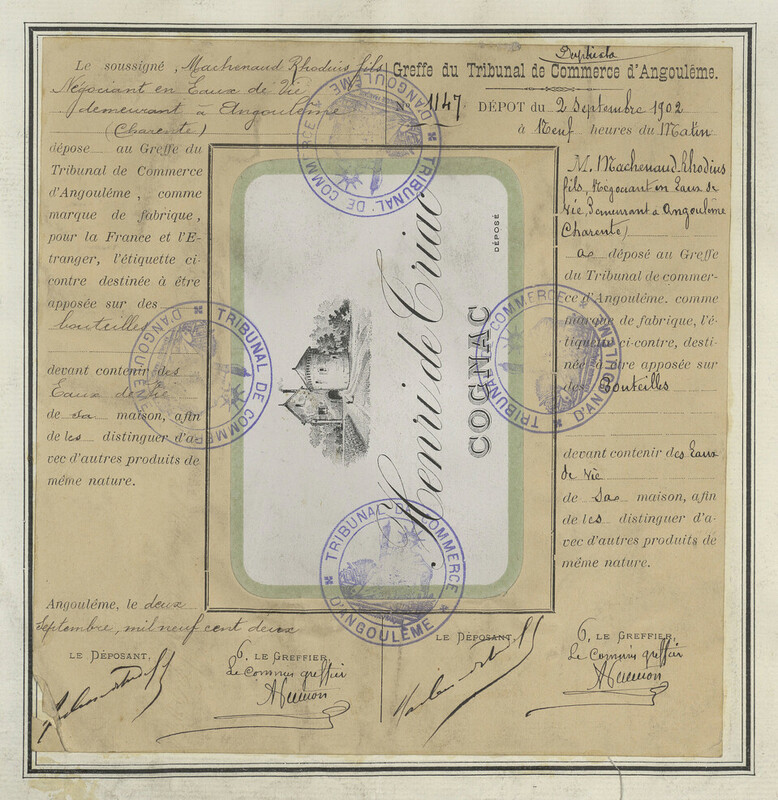 Le soussigné, Machenaud Rhodius fils
Négociant en Eaux de Vie
demeurant à Angoulême
(Charente)
dépose au Greffe du
Tribunal de Commerce
d'Angoulême, comme
marque de fabrique,
pour la France et l'E-
tranger, l'étiquette ci-
contre destinée à être
apposée sur des
bouteilles
devant contenir des
Eaux de vie
de sa maison, afin
de les distinguer d'a-
vec d'autres produits de
même nature.
Angoulême, le deux
Septembre, mil neuf cent deux
LE DÉPOSANT,
LE GREFFIER,
Le commis greffier
Duplicata
Greffe du Tribunal de Commerce d'Angoulême.
No 1147 DÉPOT du 2 Septembre 1902
à Neuf heures du Matin
M. Machenaud-Rhodius
fils, Négociant en Eaux de
Vie, Demeurant à Angoulême
Charente)
a déposé au Greffe
du Tribunal de commer-
ce d'Angoulême. comme
marque de fabrique, l'é-
tiquette ci-contre, desti-
née à être apposée sur
des Bouteilles
devant contenir des Eaux
de Vie
de sa maison, afin
de les distinguer d'a-
vec d'autres produits de
même nature.
LE DÉPOSANT,
LE GREFFIER,
Le commis greffier
Henri de Criac
COGNAC
DÉPOSÉ
TRIBUNAL DE COMMERCE D'ANGOULÊME
TRIBUNAL DE COMMERCE D'ANGOULÊME
TRIBUNAL DE COMMERCE D'ANGOULÊME
TRIBUNAL DE COMMERCE D'ANGOULÊME